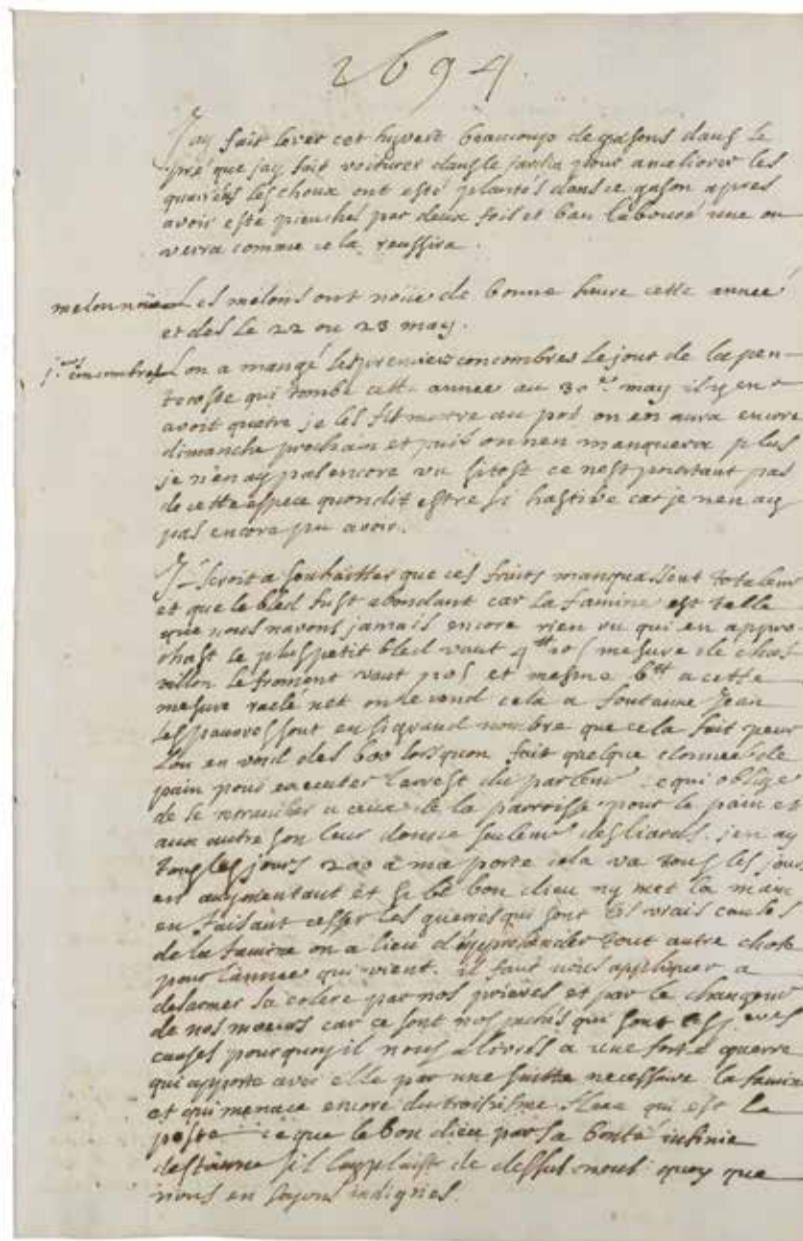 1694.
Jay fait lever cet hyvert beaucoup de gasons dans le
pré que jay fait voiturer dans le jardin pour ameliorer les
quarrés les choux ont esté plantés dans ce gason apres
avoir esté pieuché par deux fois et bien labouré une on
verra comme cela reussira.
melon noüé Les mélons ont noüé de bonne heure cette année
et des le 22 ou 23 may.
1.ers concombres Lon a mangé les premiers concombres le jour de la pen
tecoste qui tombe cette année au 30.me may il y en
avoit quatre je les fit mettre au pot on en aura encore
dimanche prochain et puis on nen manquera plus
je n'en ay pas encore vu sitost ce nest pourtant pas
de cette espece quon dit estre si hastive car je nen ay
pas encore pu avoir.
Il seroit a souhaitter que ces fruits manquassent
et que le bled fust abondant car la famine est telle
que nous navons jamais encore rien vu qui en appro
chast le plus petit bled vaut 4tt 10s mesure de chas
tillon le froment vaut et mesme 6tt a cette
mesure raclé net on le vend cela a fontaine Jean
les pauvres sont en si grand nombre que cela fait peur
Lon en void des 600 lorsquon fait quelque donnée de
pain pour executer larrest du parlem ce qui oblige
de se retrancher a ceux de la parroisse pour le pain et
aux autre son leur donne seulem des liards. jen ay
tous les jours 200 à ma porte cela va tous les jours
en augmentant et si le bon dieu ny met la main
en faisant cesser les guerres qui sont les vrais causes
de la famine on a lieu d'apprehender tout autre chose
pour lannée qui vient. il faut nous appliquer a
desarmer sa colere par nos prieres et par le changem
de nos moeurs car ce sont nos pechés qui sont les
causes pourquoy il nous a livrés a une forte guerre
qui apporte avec elle par une suitte necessaire la famine
et qui menace encore du troisisme fleau qui est la
peste ce que le bon dieu par sa bonté infinie
destourne sil luy plaist de dessus nous quoy que
nous en soyons indignes.